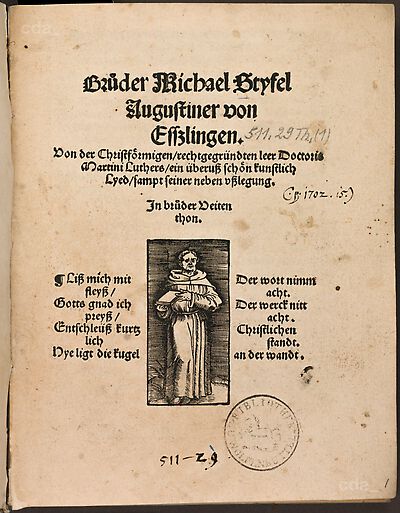 cda_
Brůder Michael Styfel
Augustiner von
Esszlingen.
511. 29 Th. (1)
Von der Christförmigen/rechtgegründten leer Doctoris
Martini Luthers/ein überuß schön kunstlich
Lyed/sampt seiner neben vßlegung.
(: g. 1702. 15.)
In brůder Veiten
thon.
¶ Liß mich mit
fleyß/
Gotts gnad ich
preyß/
Entschleüß kurtz
lich
Hye ligt die kugel
Der wort nimm
acht.
Der werck nitt
acht.
Christlichen
standt.
an der wandt.
BIBLIOTHEK
511-29
cda_
1